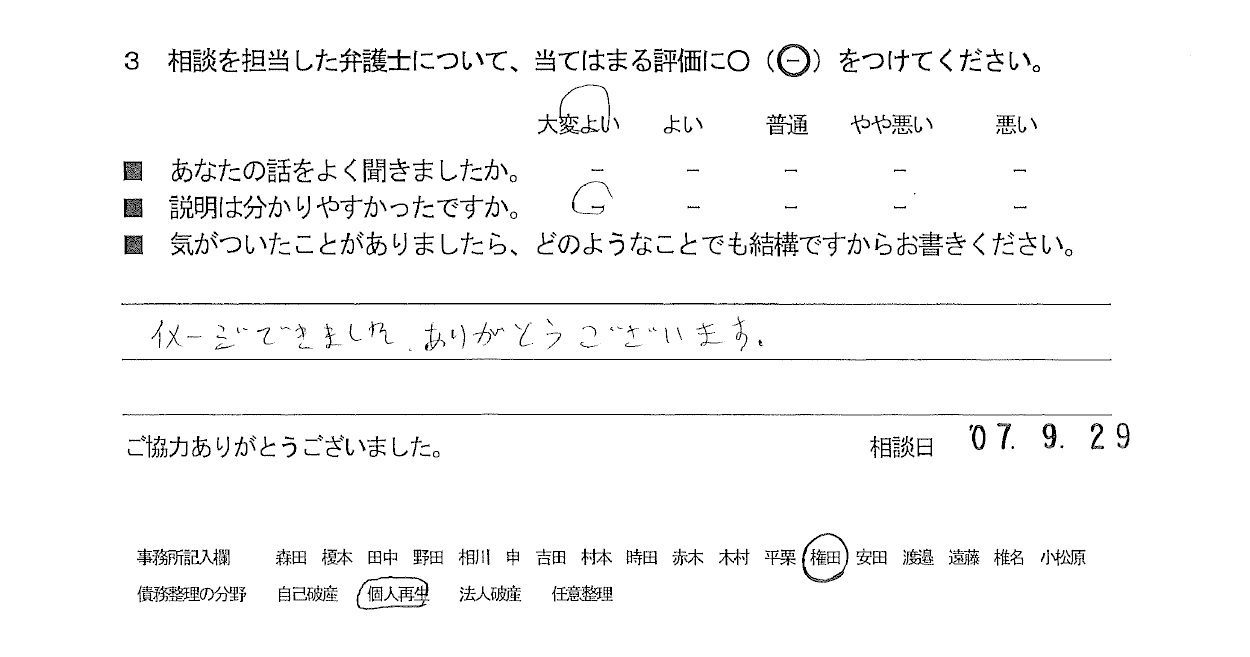 3 相談を担当した弁護士について、当てはまる評価に○（㊀）をつけてください。
大変よい よい 普通 やや悪い 悪い
■ あなたの話をよく聞きましたか。 － － － － －
■ 説明は分かりやすかったですか。 － － － － －
■ 気がついたことがありましたら、どのようなことでも結構ですからお書きください。
イメージできました、ありがとうございます。
ご協力ありがとうございました。 相談日 '07. 9. 29
事務所記入欄 森田 榎本 田中 野田 相川 申 吉田 村本 時田 赤木 木村 平栗 権田 安田 渡邉 遠藤 椎名 小松原
債務整理の分野 自己破産 個人再生 法人破産 任意整理